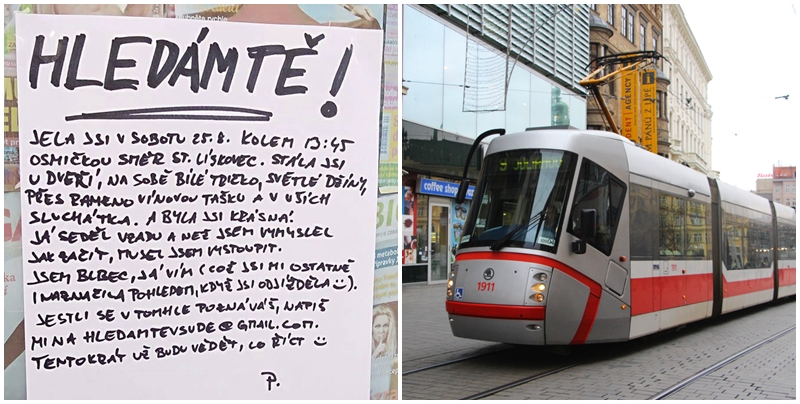 HLEDÁMTĚ!
JELA JSI V SOBOTU 25.8. KOLEM 13:45
OSMIČKOU SMĚR ST. LÍSKOVEC. STÁLA JSI
U DVEŘÍ, NA SOBĚ BÍLÉ TRIČKO, SVĚTLÉ DŽÍNY,
PŘES RAMENO VÍNOVOU TAŠKU A V UŠÍCH
SLUCHÁTKA. A BYLA JSI KRÁSNÁ.
JÁ SEDĚL VZADU A NEŽ JSEM VYMYSLEL
JAK ZAČÍT, MUSEL JSEM VYSTOUPIT.
JSEM BLBEC, JÁ VÍM (COŽ JSI MI OSTATNĚ
I NAZNAČILA POHLEDEM, KDYŽ JSI ODJÍŽDĚLA ☺).
JESTLI SE V TOMHLE POZNÁVÁŠ, NAPIŠ
MI NA HLEDAMTEVSUDE@GMAIL.COM.
TENTOKRÁT UŽ BUDU VĚDĚT, CO ŘÍCT ☺
P.
coffee shop
1911